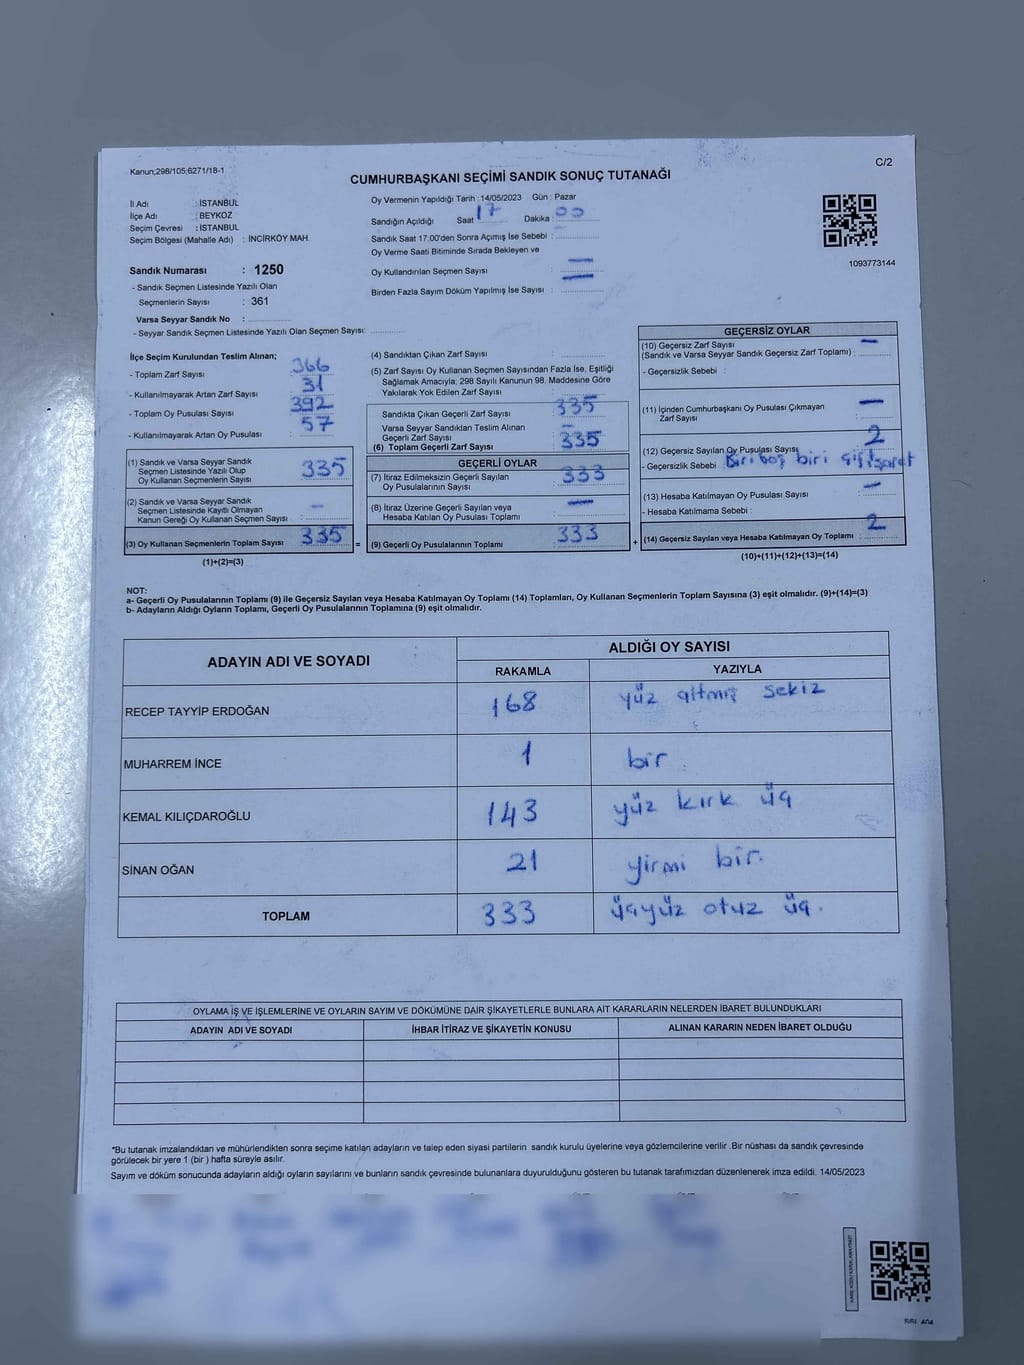 Kanun;298/105;6271/18-1
C/2
CUMHURBAŞKANI SEÇİMİ SANDIK SONUÇ TUTANAĞI
İl Adı : İSTANBUL
İlçe Adı : BEYKOZ
Seçim Çevresi : İSTANBUL
Seçim Bölgesi (Mahalle Adı) : İNCİRKÖY MAH.
Sandık Numarası : 1250
- Sandık Seçmen Listesinde Yazılı Olan
Seçmenlerin Sayısı : 361
Varsa Seyyar Sandık No :
- Seyyar Sandık Seçmen Listesinde Yazılı Olan Seçmen Sayısı:
Oy Vermenin Yapıldığı Tarih :14/05/2023 Gün : Pazar
Sandığın Açıldığı Saat 17 Dakika : 00
Sandık Saat 17:00'den Sonra Açımış İse Sebebi :
Oy Verme Saati Bitiminde Sırada Bekleyen ve
Oy Kullandırılan Seçmen Sayısı : —
Birden Fazla Sayım Döküm Yapılmış İse Sayısı : —
1093773144
İlçe Seçim Kurulundan Teslim Alınan;
- Toplam Zarf Sayısı : 366
- Kullanılmayarak Artan Zarf Sayısı : 31
- Toplam Oy Pusulası Sayısı : 392
- Kullanılmayarak Artan Oy Pusulası : 57
(1) Sandık ve Varsa Seyyar Sandık
Seçmen Listesinde Yazılı Olup
Oy Kullanan Seçmenlerin Sayısı : 335
(2) Sandık ve Varsa Seyyar Sandık
Seçmen Listesinde Kayıtlı Olmayan
Kanun Gereği Oy Kullanan Seçmen Sayısı : —
(3) Oy Kullanan Seçmenlerin Toplam Sayısı : 335 =
(1)+(2)=(3)
(4) Sandıktan Çıkan Zarf Sayısı :
(5) Zarf Sayısı Oy Kullanan Seçmen Sayısından Fazla İse, Eşitliği
Sağlamak Amacıyla; 298 Sayılı Kanunun 98. Maddesine Göre
Yakılarak Yok Edilen Zarf Sayısı :
Sandıkta Çıkan Geçerli Zarf Sayısı : 335
Varsa Seyyar Sandıktan Teslim Alınan
Geçerli Zarf Sayısı : —
(6) Toplam Geçerli Zarf Sayısı : 335
GEÇERLİ OYLAR
(7) İtiraz Edilmeksizin Geçerli Sayılan
Oy Pusulalarının Sayısı : 333
(8) İtiraz Üzerine Geçerli Sayılan veya
Hesaba Katılan Oy Pusulası Toplamı : —
(9) Geçerli Oy Pusulalarının Toplamı : 333 +
GEÇERSİZ OYLAR
(10) Geçersiz Zarf Sayısı
(Sandık ve Varsa Seyyar Sandık Geçersiz Zarf Toplamı) : —
- Geçersizlik Sebebi :
(11) İçinden Cumhurbaşkanı Oy Pusulası Çıkmayan
Zarf Sayısı : —
(12) Geçersiz Sayılan Oy Pusulası Sayısı : 2
- Geçersizlik Sebebi : Biri boş biri çift işaret
(13) Hesaba Katılmayan Oy Pusulası Sayısı : —
- Hesaba Katılmama Sebebi :
(14) Geçersiz Sayılan veya Hesaba Katılmayan Oy Toplamı : 2
(10)+(11)+(12)+(13)=(14)
NOT:
a- Geçerli Oy Pusulalarının Toplamı (9) ile Geçersiz Sayılan veya Hesaba Katılmayan Oy Toplamı (14) Toplamları, Oy Kullanan Seçmenlerin Toplam Sayısına (3) eşit olmalıdır. (9)+(14)=(3)
b- Adayların Aldığı Oyların Toplamı, Geçerli Oy Pusulalarının Toplamına (9) eşit olmalıdır.
ADAYIN ADI VE SOYADI
ALDIĞI OY SAYISI
RAKAMLA YAZIYLA
RECEP TAYYİP ERDOĞAN 168 yüz altmış sekiz
MUHARREM İNCE 1 bir
KEMAL KILIÇDAROĞLU 143 yüz kırk üç
SİNAN OĞAN 21 yirmi bir.
TOPLAM 333 üçyüz otuz üç.
OYLAMA İŞ VE İŞLEMLERİNE VE OYLARIN SAYIM VE DÖKÜMÜNE DAİR ŞİKAYETLERLE BUNLARA AİT KARARLARIN NELERDEN İBARET BULUNDUKLARI
ADAYIN ADI VE SOYADI İHBAR İTİRAZ VE ŞİKAYETİN KONUSU ALINAN KARARIN NEDEN İBARET OLDUĞU
*Bu tutanak imzalandıktan ve mühürlendikten sonra seçime katılan adayların ve talep eden siyasi partilerin sandık kurulu üyelerine veya gözlemcilerine verilir .Bir nüshası da sandık çevresinde
görülecek bir yere 1 (bir ) hafta süreyle asılır.
Sayım ve döküm sonucunda adayların aldığı oyların sayılarını ve bunların sandık çevresinde bulunanlara duyurulduğunu gösteren bu tutanak tarafımızdan düzenlenerek imza edildi. 14/05/2023